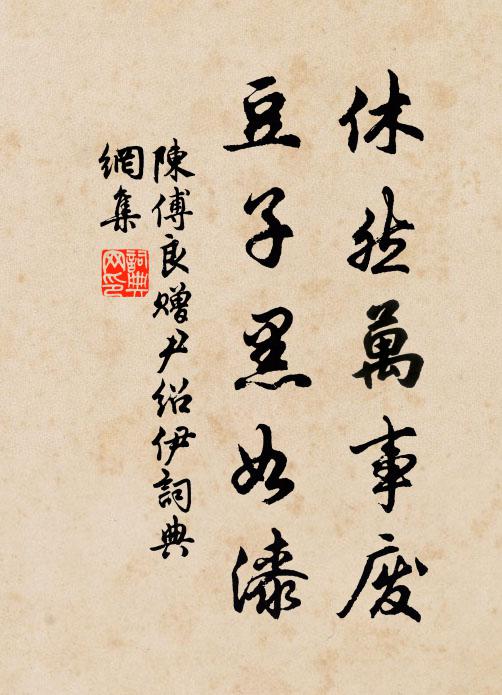 休然萬事废
豆子黑如漆
陳傅良赠尹紹伊詞典
網集
詞典
网印